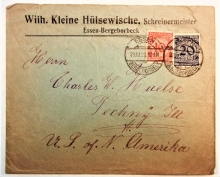 Wilh. Kleine Hülsewische, Schreinermeister
Essen-Bergeborbeck
20
Herrn
Charles W.
Techny Ill
U. S. of N. Amerika